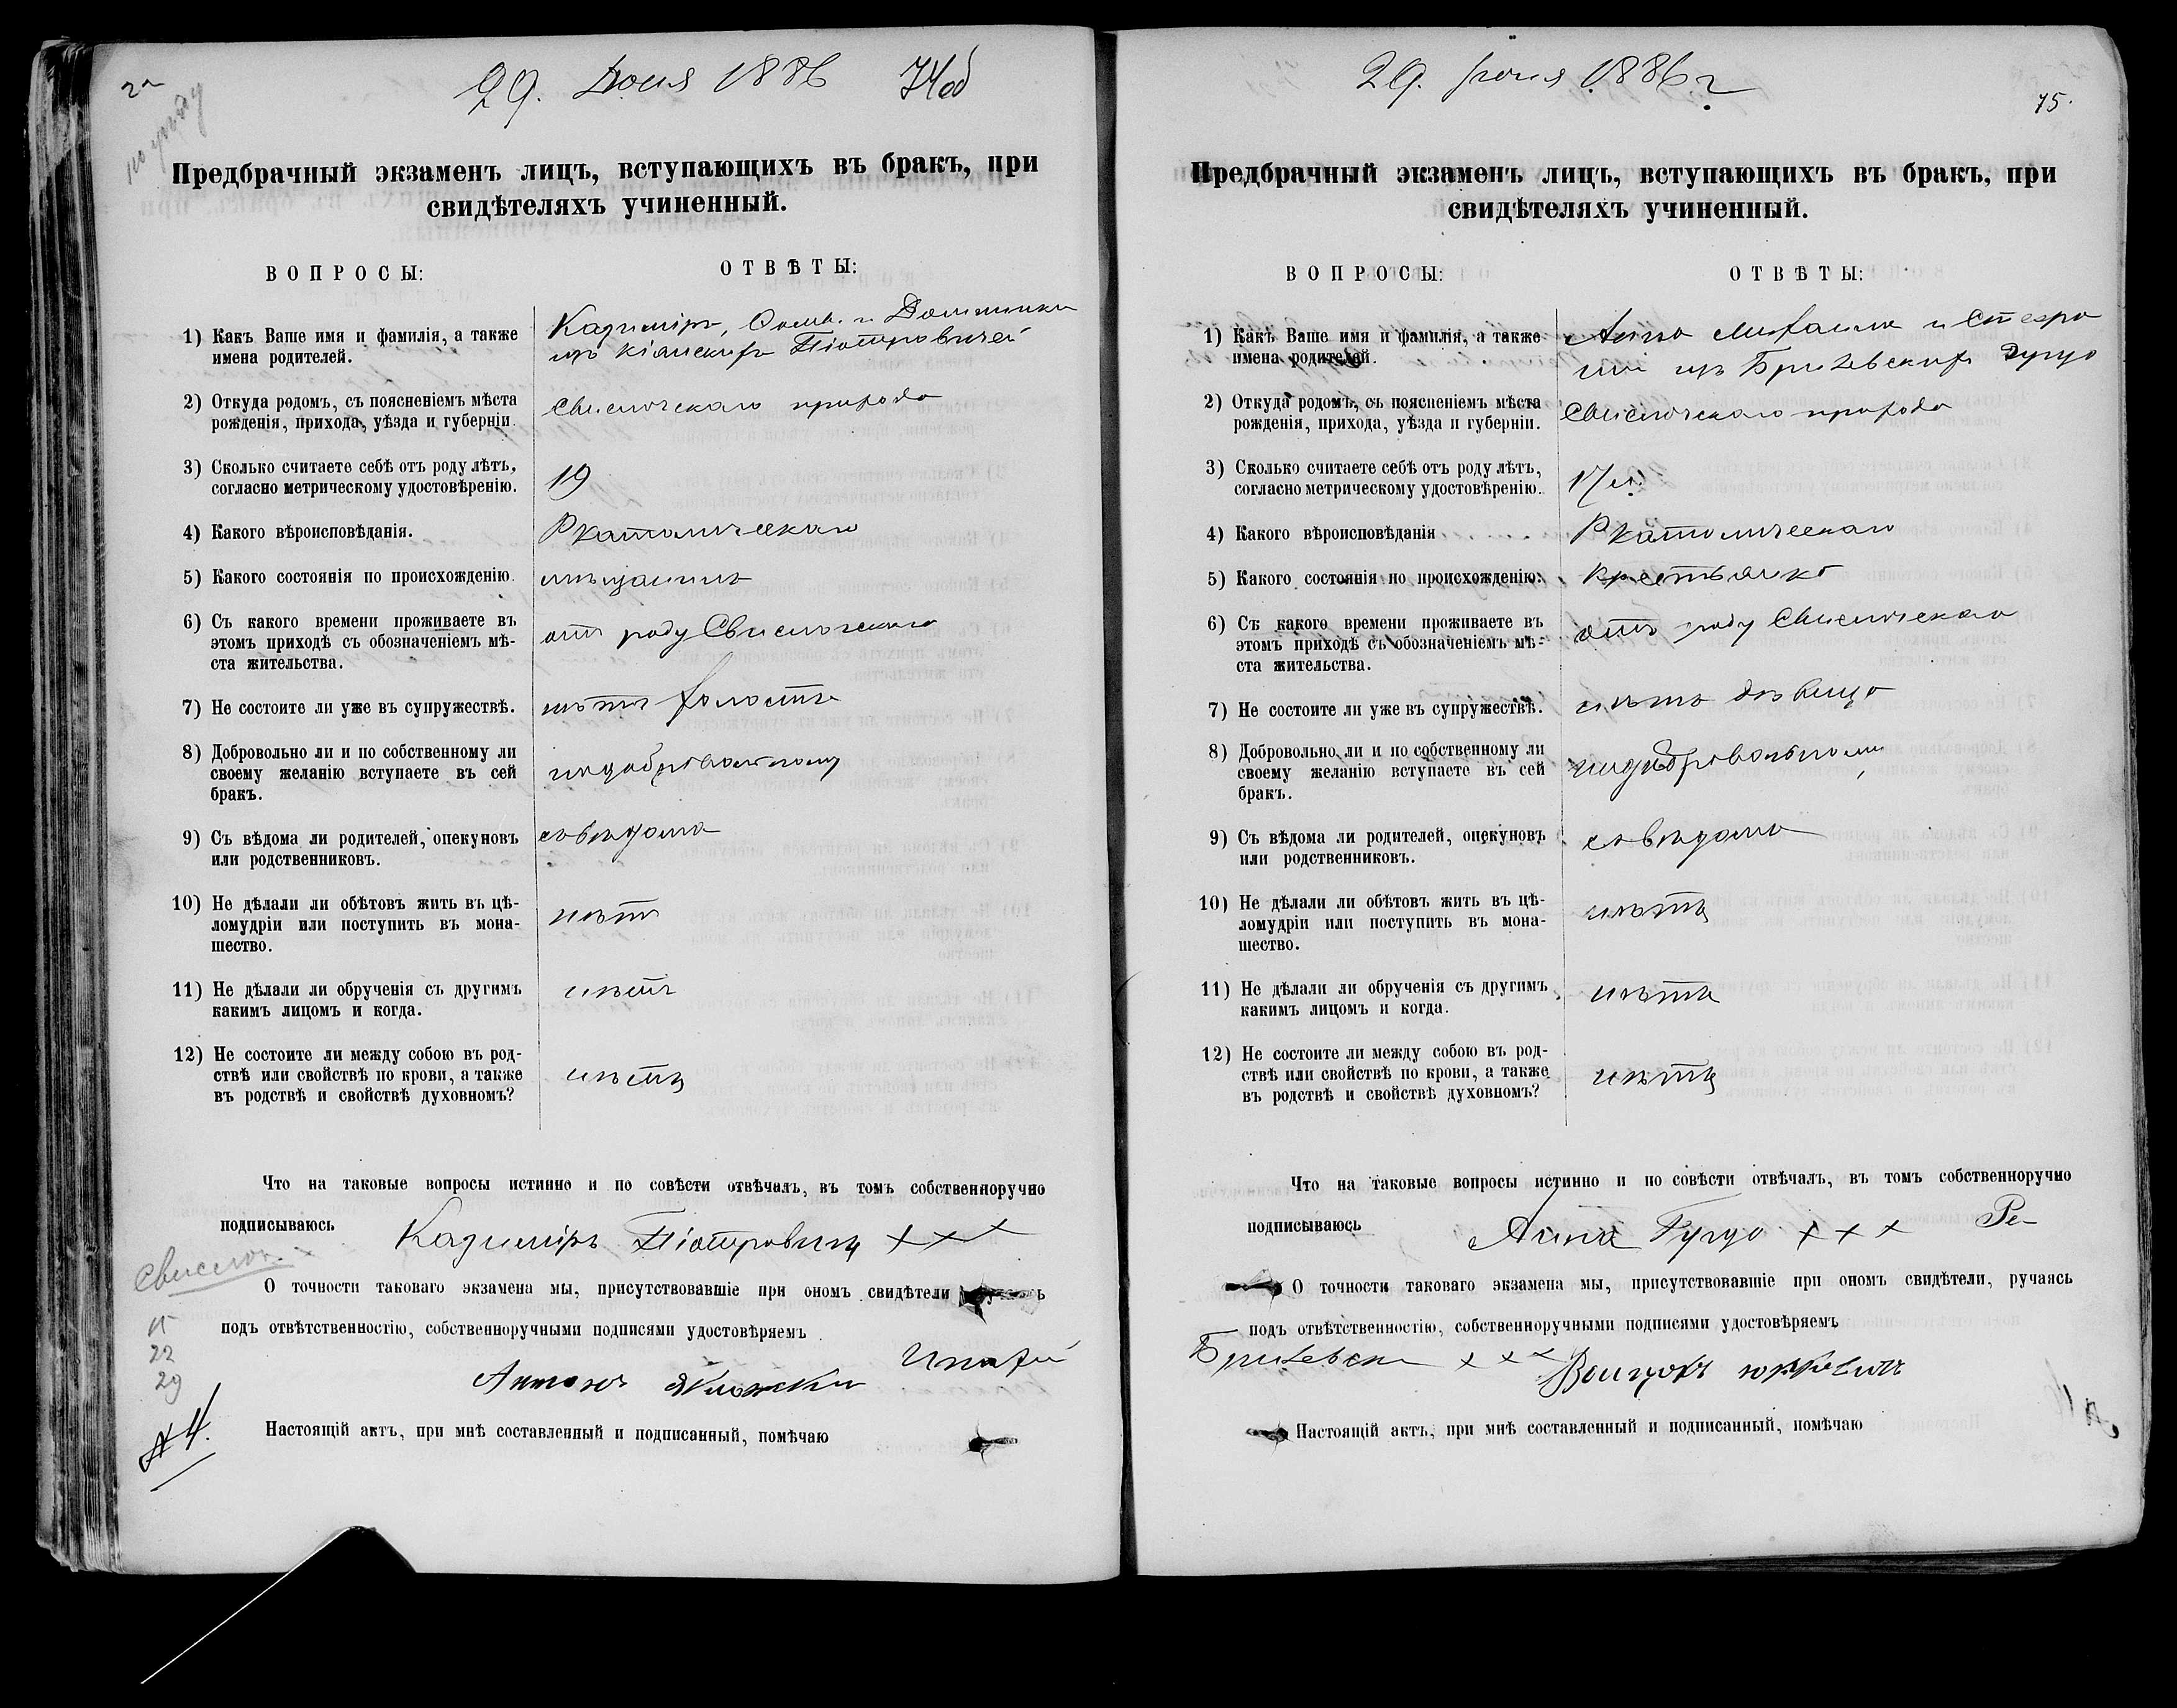 29. Іюня 1886 74об
Предбрачный экзаменъ лицъ, вступающихъ въ бракъ, при
свидѣтеляхъ учиненный.
ВОПРОСЫ:
ОТВѢТЫ:
1) Какъ Ваше имя и фамилія, а также
имена родителей.
Казиміръ,
Піотровичей
2) Откуда родомъ, съ поясненіемъ мѣста
рожденія, прихода, уѣзда и губерніи.
Свислочскаго прихода
3) Сколько считаете себѣ отъ роду лѣтъ,
согласно метрическому удостовѣренію.
19
4) Какого вѣроисповѣданія.
Р католическаго
5) Какого состоянія по происхожденію.
мѣщанинъ
6) Съ какого времени проживаете въ
этомъ приходѣ съ обозначеніемъ мѣ-
ста жительства.
отъ роду Свислочскаго
7) Не состоите ли уже въ супружествѣ.
нѣтъ холостъ
8) Добровольно ли и по собственному ли
своему желанію вступаете въ сей
бракъ.
9) Съ вѣдома ли родителей, опекуновъ
или родственниковъ.
съ вѣдома
10) Не дѣлали ли обѣтовъ жить въ цѣ-
ломудріи или поступить въ мона-
шество.
нѣтъ
11) Не дѣлали ли обрученія съ другимъ
какимъ лицомъ и когда.
нѣтъ
12) Не состоите ли между собою въ род-
ствѣ или свойствѣ по крови, а также
въ родствѣ и свойствѣ духовномъ?
нѣтъ
Что на таковые вопросы истинно и по совѣсти отвѣчалъ, въ томъ собственноручно
подписываюсь Казиміръ Піотровичъ +++
Свислоч.
О точности таковаго экзамена мы, присутствовавшіе при ономъ свидѣтели
подъ отвѣтственностію, собственноручными подписями удостовѣряемъ
15
22
29
Антонъ
4.
Настоящій актъ, при мнѣ составленный и подписанный, помѣчаю
29. Іюня 1886 г
75.
Предбрачный экзаменъ лицъ, вступающихъ въ бракъ, при
свидѣтеляхъ учиненный.
ВОПРОСЫ:
ОТВѢТЫ:
1) Какъ Ваше имя и фамилія, а также
имена родителей.
Анна Михаила и
изъ
2) Откуда родомъ, съ поясненіемъ мѣста
рожденія, прихода, уѣзда и губерніи.
Свислочскаго прихода
3) Сколько считаете себѣ отъ роду лѣтъ,
согласно метрическому удостовѣренію.
17
4) Какого вѣроисповѣданія
Р католическаго
5) Какого состоянія по происхожденію.
крестьянка
6) Съ какого времени проживаете въ
этомъ приходѣ съ обозначеніемъ мѣ-
ста жительства.
отъ роду Свислочскаго
7) Не состоите ли уже въ супружествѣ.
нѣтъ дѣвица
8) Добровольно ли и по собственному ли
своему желанію вступаете въ сей
бракъ.
9) Съ вѣдома ли родителей, опекуновъ
или родственниковъ.
съ вѣдома
10) Не дѣлали ли обѣтовъ жить въ цѣ-
ломудріи или поступить въ мона-
шество.
нѣтъ
11) Не дѣлали ли обрученія съ другимъ
какимъ лицомъ и когда.
нѣтъ
12) Не состоите ли между собою въ род-
ствѣ или свойствѣ по крови, а также
въ родствѣ и свойствѣ духовномъ?
нѣтъ
Что на таковые вопросы истинно и по совѣсти отвѣчалъ, въ томъ собственноручно
подписываюсь Анна +++
О точности таковаго экзамена мы, присутствовавшіе при ономъ свидѣтели, ручаясь
подъ отвѣтственностію, собственноручными подписями удостовѣряемъ
+++
Настоящій актъ, при мнѣ составленный и подписанный, помѣчаю